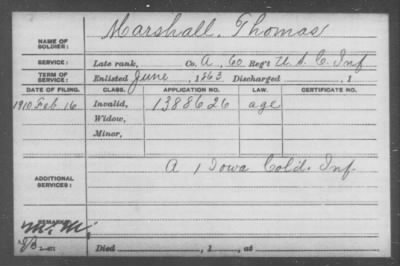 NAME OF SOLDIER: Marshall, Thomas
SERVICE: Late rank, Co. A, 60 Reg't U. S. C. Inf
TERM OF SERVICE: Enlisted June, 1863 Discharged , 1
DATE OF FILING. CLASS. APPLICATION NO. LAW. CERTIFICATE NO.
1910 Feb 16 Invalid, 1388626 age
Widow,
Minor,
A 1 Iowa Cold. Inf
ADDITIONAL SERVICES:
REMARKS:
Died , 1 , at